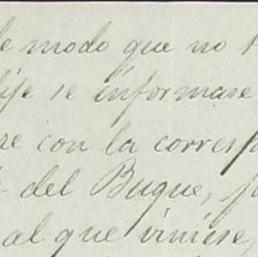 de modo que no
dije se informase
re con la corresp
del Buque,
al que viniese,